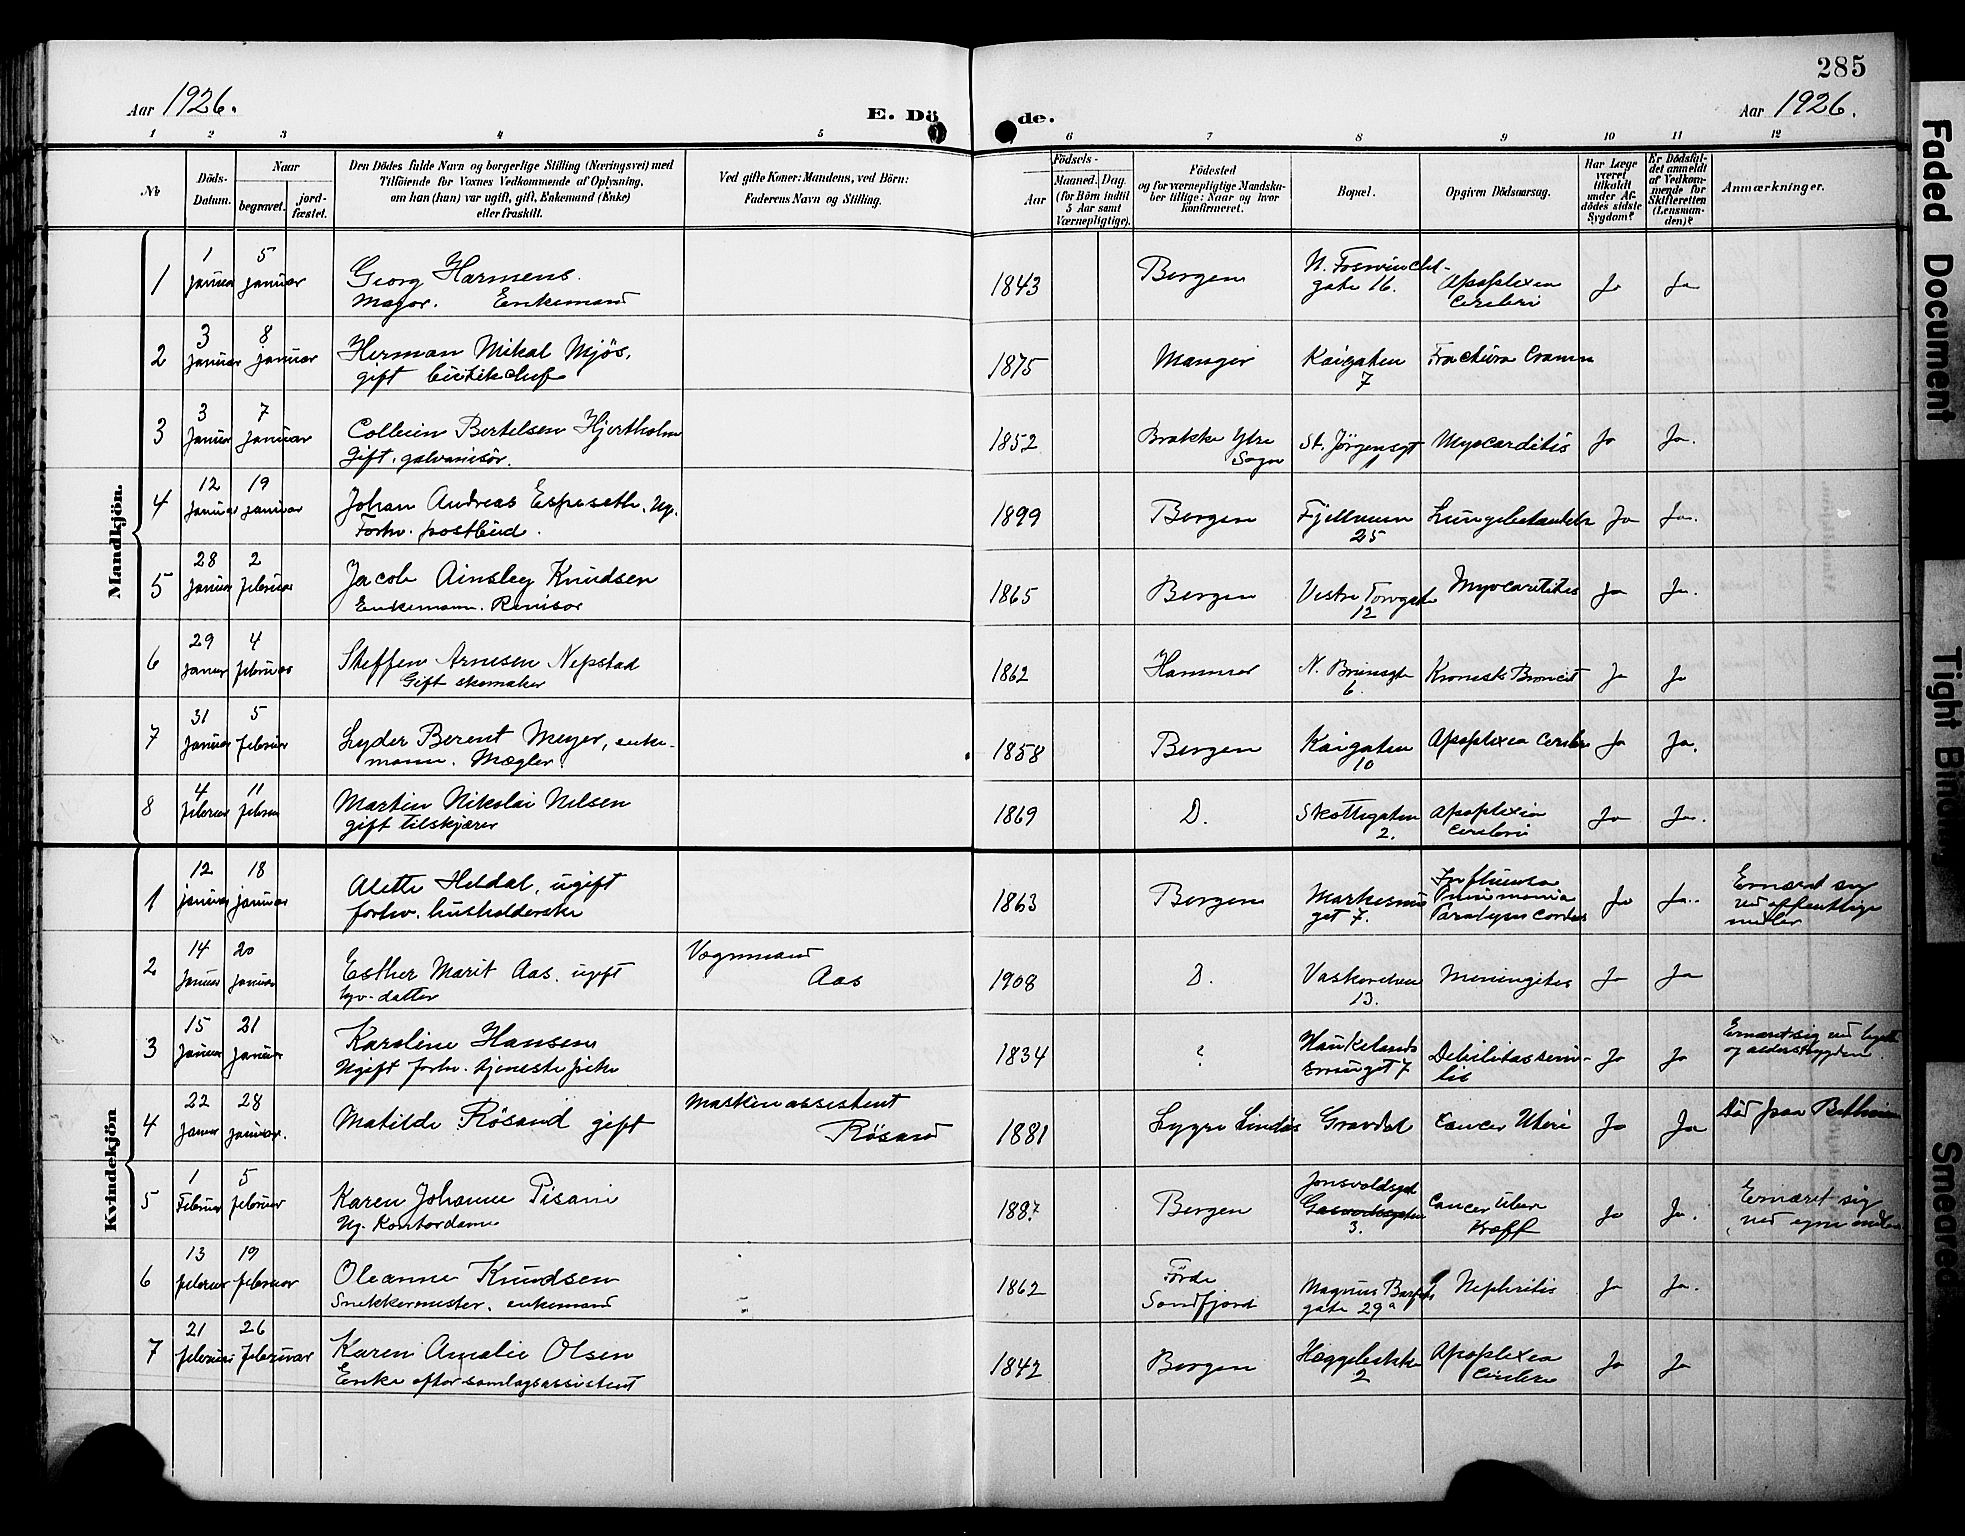 285
Aar 1926.
E. Döde.
Aar 1926.
1 2 3 4 5 6 7 8 9 10 11 12
№
Döds-Datum.
Naar
begravet.
jordfæstet.
Den Dödes fulde Navn og borgerlige Stilling (Næringsvei) med
Tilföiende for Voxnes Vedkommende af Oplysning,
om han (hun) var ugift, gift, Enkemand (Enke)
eller fraskilt.
Ved gifte Koner: Mandens, ved Börn:
Faderens Navn og Stilling.
Födsels-
Aar
Maaned. Dag
(for Börn indtil
5 Aar samt
Værnepligtige).
Födested
og for værnepligtige Mandskaber
tillige: Naar og hvor
konfirmeret.
Bopæl.
Opgiven Dödsaarsag.
Har Læge
været
tilkaldt
under Afdödes
sidste
Sygdom?
Er Dödsfaldet
anmeldt
af Vedkommende
for
Skifteretten
(Lensmanden)?
Anmærkninger.
Mandkjön.
1 1 januar 5 januar Georg Harmens. Major. Enkemand 1843 Bergen gate 16. Apoplexia Cerebri Ja Ja
2 3 januar 8 januar Herman Mikal Mjös, gift 1875 Manger Kaigaten 7 Fractura Cranii
3 3 Januar 7 januar Bertelsen Hjertholm Gift. galvanisör. 1852 Brække Ytre Sogn St. Jörgensgt Myocarditis Ja Ja.
4 12 Januar 19 januar Johan Andreas Espeseth. Ug. Forhv. postbud. 1899 Bergen Fjellveien 25 Ja Ja.
5 28 Januar 2 februar Jacob Ainsley Knudsen Enkemann. Revisor 1865 Bergen Vestre Torvgate 12 Myocarditis Ja Ja.
6 29 Januar 4 februar Steffen Arnesen Nepstad Gift skomaker 1862 Hammer 6. Kronisk Broncit Ja Ja
7 31 Januar 5 februar Lyder Berent Meyer, enkemann. Mægler. 1858 Bergen Kaigaten 10 Apoplexia Cerebri Ja Ja.
8 4 februar 11 februar Martin Nikolai Nilsen gift tilskjærer 1869 D. Skottegaten 2. Apoplexia Cerebri Ja Ja.
Kvindekjön
1 12 januar 18 januar Alette Heldal, ugift forhv. husholderske 1863 Bergen Markusmusget 7. Influensa Pneumonia Paralysis Cordis Ja Ja. Ernæret sig ved offentlige midler
2 14 Januar 20 januar Esther Marit Aas. ugift hjv. datter Vognmand Aas 1908 D. Vaskerelven 13. Meningitis Ja Ja
3 15 Januar 21 januar Karoline Hansen Ugift forhv. tjenestepike 1834 ? Haukelands 7 Debilitas senilis Ja Ja Ernæret sig ved og alderstrygden
4 22 januar 28 januar. Matilde Rösand gift Maskinassistent Rösand 1881 Lygre Lindås Gravdal Cancer Uteri Ja Ja Död paa
5 1 Februar 5 februar Karen Johanne Pisani Ug. Kontordame 1887 Bergen Jonsvoldsgt 3. Cancer Ja Ja. Ernæret sig ved egne midler
6 13 februar 19 februar Oleanne Knudsen Snekkermester. enkemand 1862 Förde Söndfjord Magnus Barfods gate 29a Nephritis Ja Ja.
7 21 februar 26 februar Karen Amalie Olsen Enke efter samlagsassistent 1842 Bergen Heggebakken 2 Apoplexia Cerebri Ja Ja
Faded Document
Tight Binding
Smeared